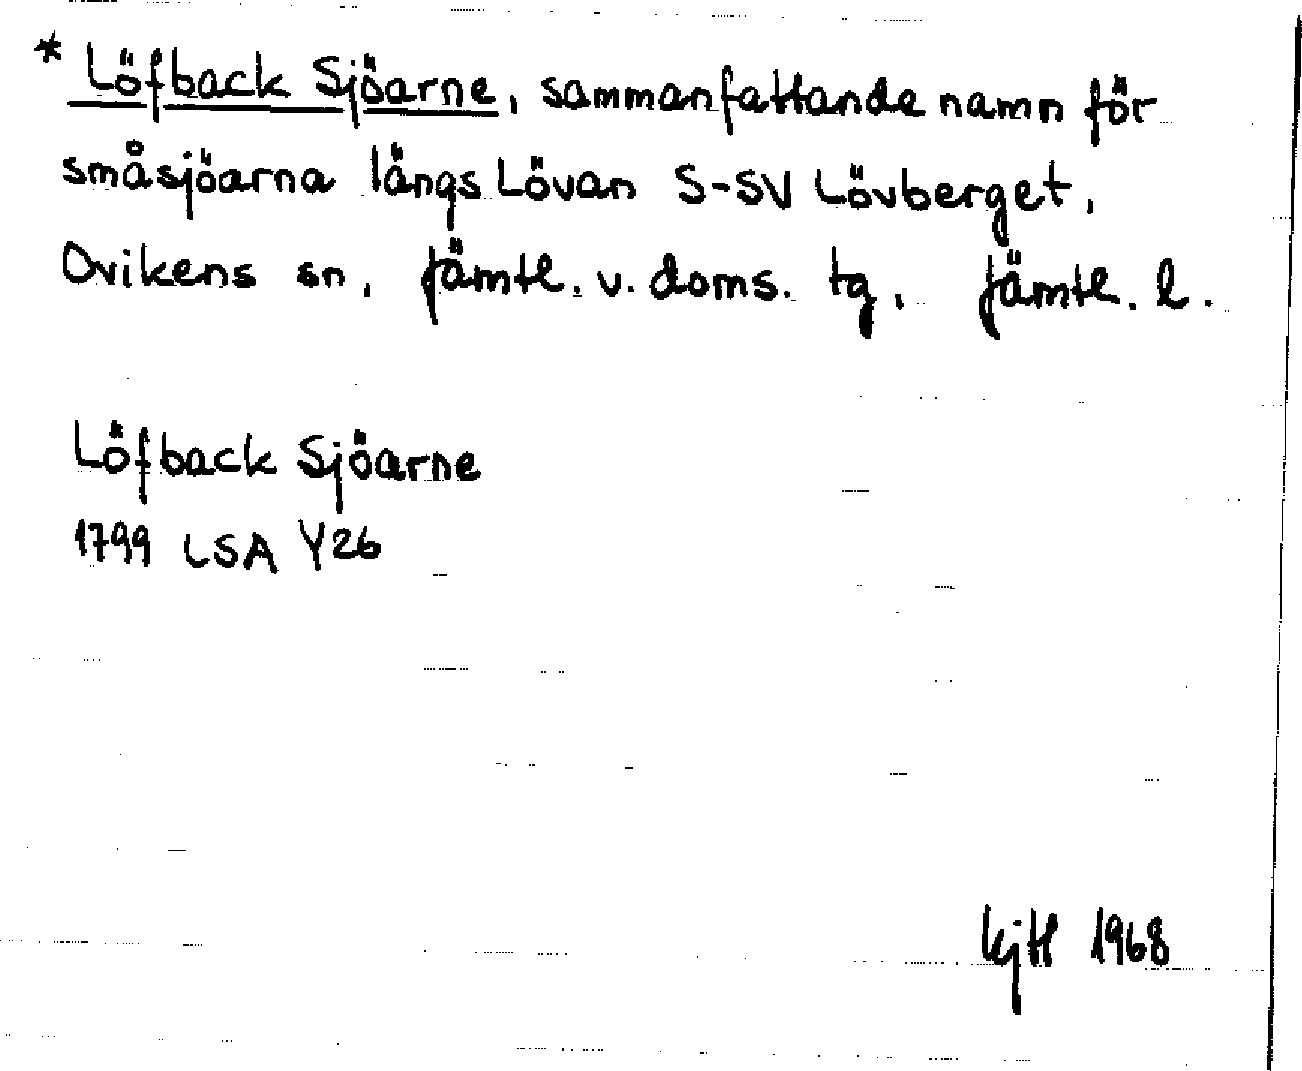 * Löfback Sjöarne, sammanfattande namn för
småsjöarna längs Lövan S-SV Lövberget,
Ovikens sn, Jämtl. v. doms. tg, Jämtl. l.
Löfback Sjöarne
1799 LSA Y26
1968